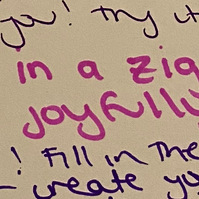 you! Try it
in a zig
joyfully
! Fill in The
- create yo